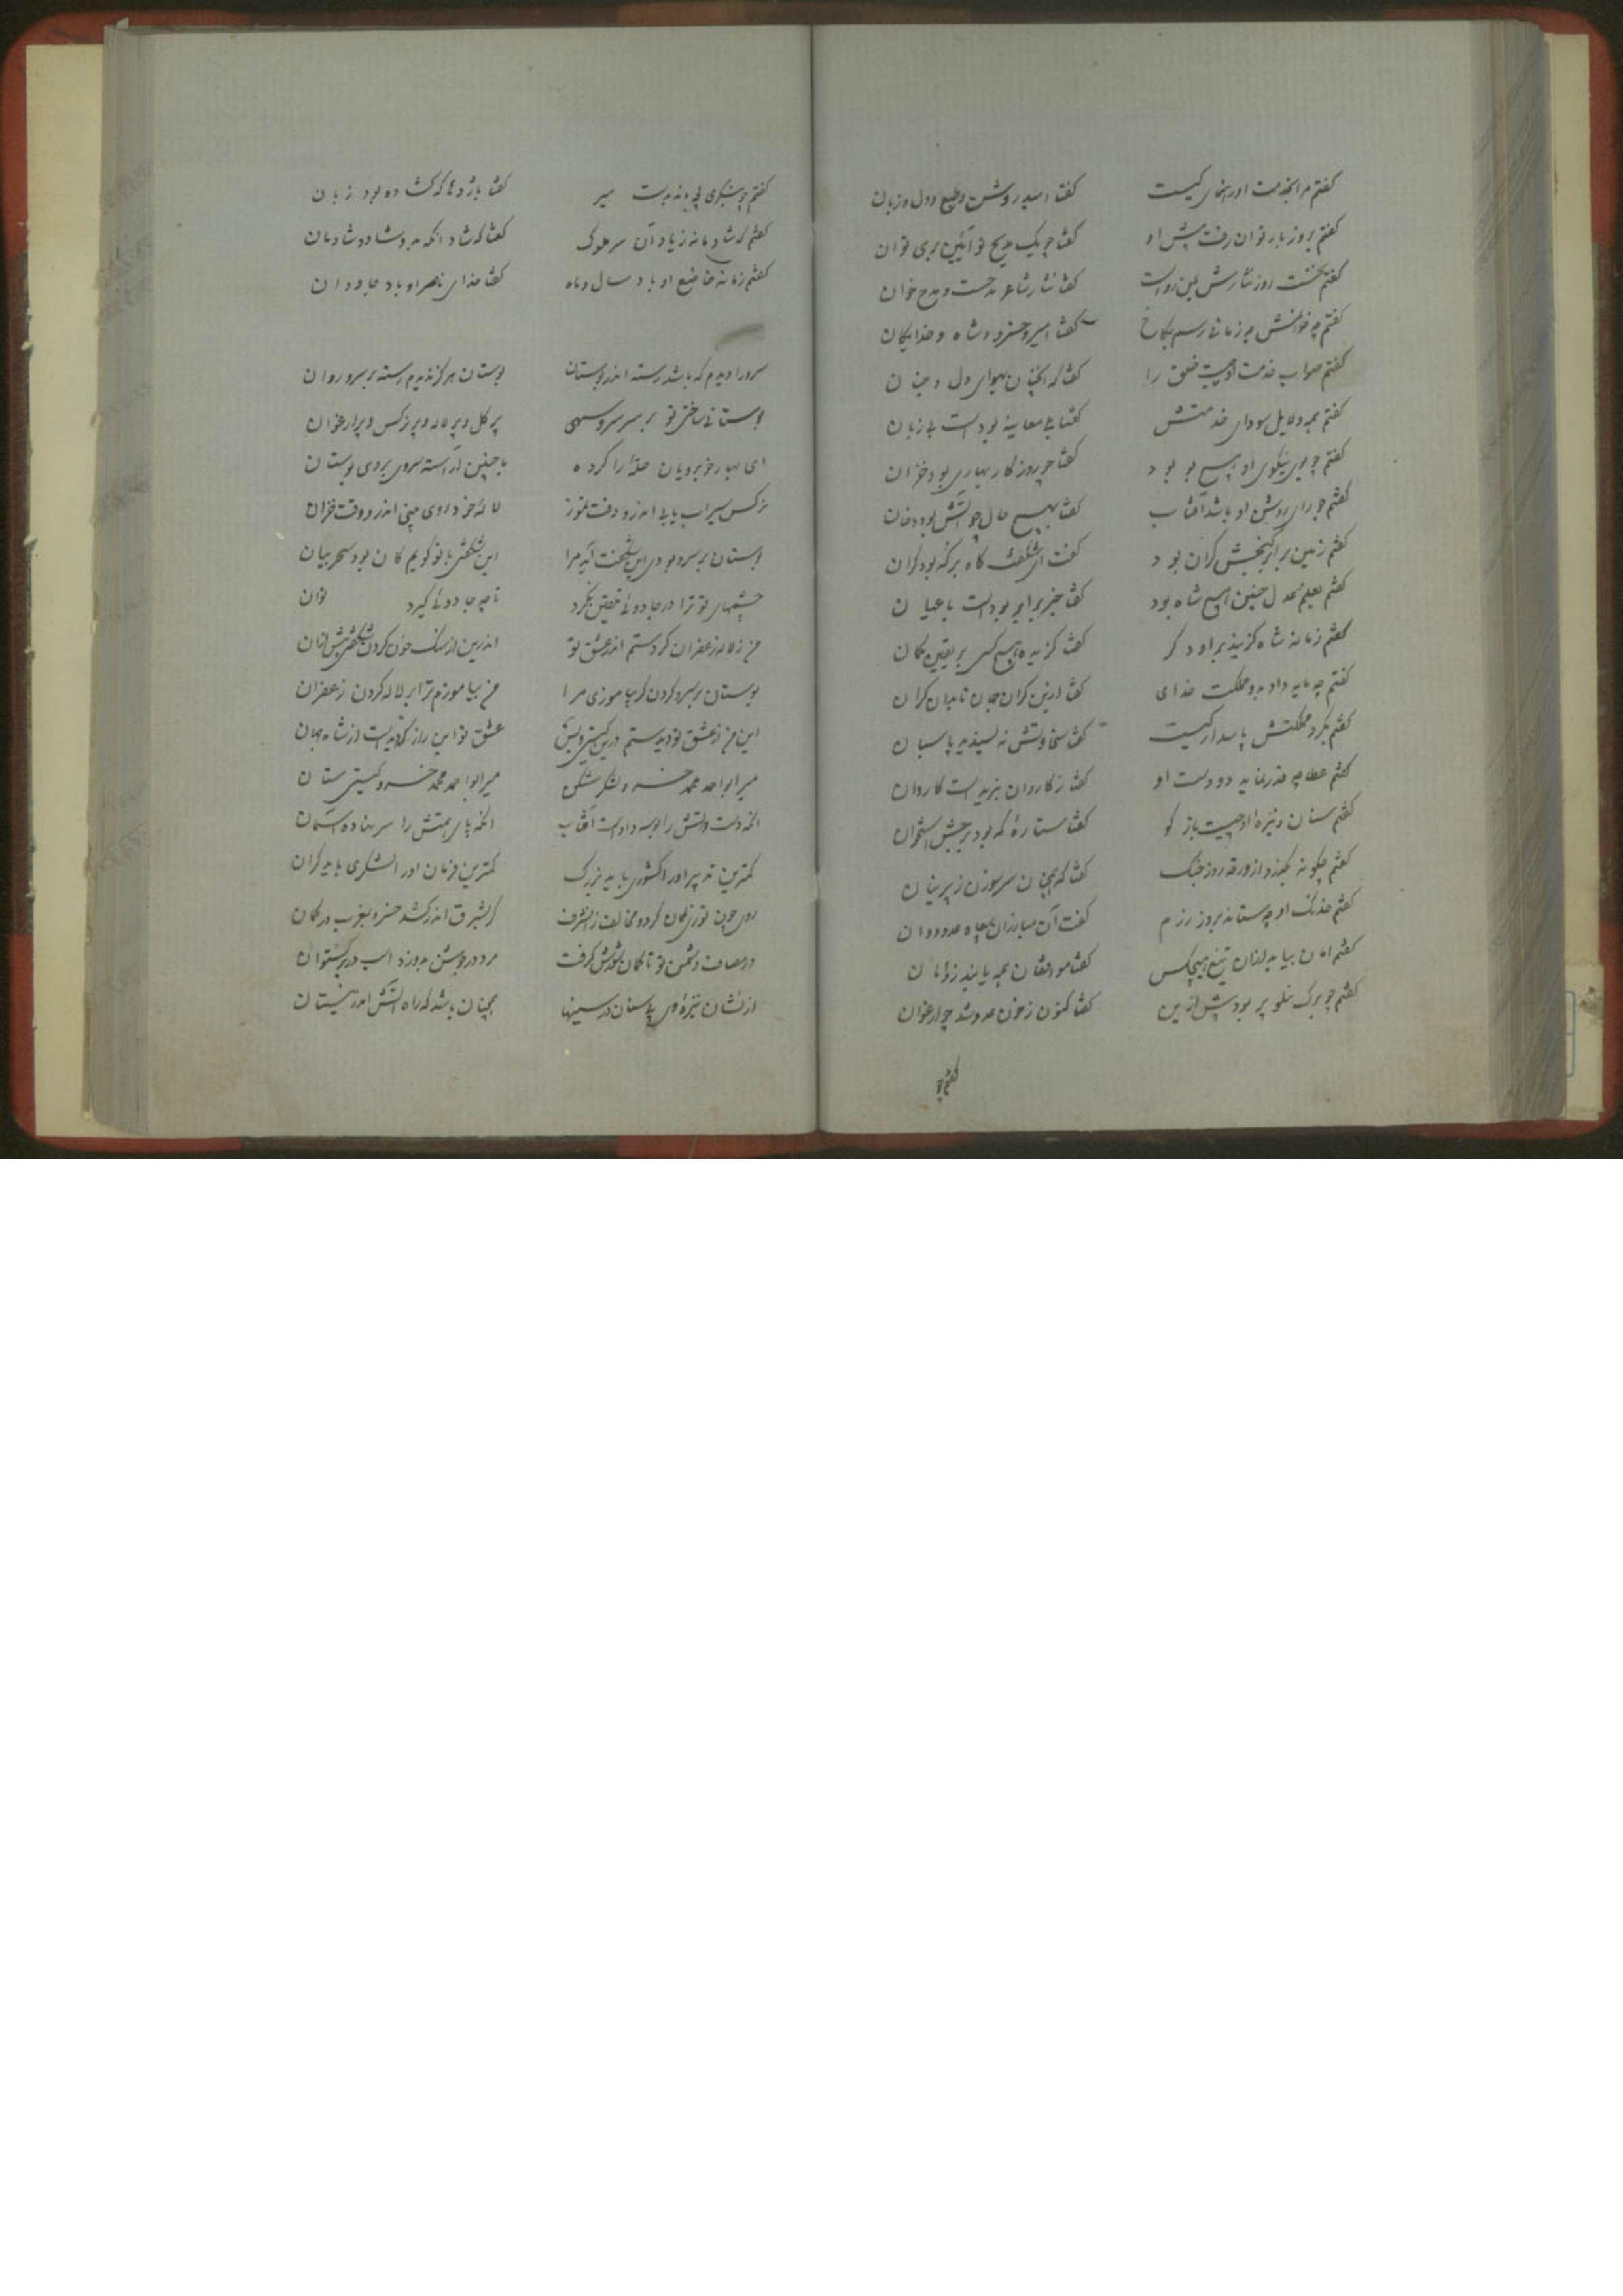 گفتم مرا بخدمت او رهنمای کیست گفتا امید روشن و طبع و دل و زبان
گفتم بروز بار توان رفت پیش او گفتا چو یک مدیح نو آئین بری توان
گفتم نخست روز نثارش پس رواست گفتا نثار شاعر مدحست و مدح خوان
گفتم چه خوانمش چو زمانی رسم بکاخ گفتا امیر و خسرو و شاه و خدایگان
گفتم صواب خدمت او چیست خلق را گفتا که اینجهان بهوای دل و جنان
گفتم همه دلایل سودای خدمتش گفتا بی معاینه بود است بی زبان
گفتم چو بوی نیکوی او هیچ بو بود گفتا چو روزگار بهاری بود خزان
گفتم چو رای روشن او باشد آفتاب گفتا بهیچ حال چو آتش بود دخان
گفتم زمین برابر گنجش گران بود گفت ای شگفت کاه برکه بود گران
گفتم بعلم و عدل چنین هیچ شاه بود گفتا خبر برابر بود است با عیان
گفتم زمانه شاه گزیند بر او دگر گفتا گزیده هیچ کس بر یقین گمان
گفتم چه مایه داد بدو مملکت خدای گفتا ازین کران جهان تا بدان کران
گفتم بگرد مملکتش پاسدار کیست گفتا سخاوتش نه پسندید پاسبان
گفتم عطا چه قدر نماید دو دست او گفتا ز کاروان بنریده است کاروان
گفتم سنان نیزه او چیست باز گو گفتا ستارهٔ که بود برجش استخوان
گفتم چگونه بگذرد از ورقه روز جنگ گفتا که همچنان سر سوزن ز پرنیان
گفتم خدنگ او چه ستاند بروز رزم گفت آن مبارزان بچاه عدو روان
گفتم امان بیابد ازان تیغ هیچکس گفتا موافقان همه یابند زو امان
گفتم چو برگ نیلوفر بود پیش ازین گفتا کنون ز خون عدو شد چو ارغوان
گفتم چو
گفتم چو بنگری بچه ماند بدست میر گفتا باژدها که گشاده بود زبان
گفتم که شادمانه زیاد آن سر ملوک گفتا که شاد آنکه بدو شاد و شادمان
گفتم زمانه خاضع او باد سال و ماه گفتا خدای ناصر او باد جاودان
سرو را دیدم که باشد رسته اندر بوستان بوستان هرگز ندیدم رسته بر سرو روان
بوستانی ساختی تو بر سر سرو سهی پر گل و پر لاله و پر نرگس و پر ارغوان
ای بهار خوبرویان حلهٔ را کرده با چنین آراسته سروی بردی بوستان
نرگس سیراب یابی اندر و وقت تموز لالهٔ خود روی بینی اندر و وقت خزان
بوستان بر سرو بودی این شگفت آید مرا این شگفتی با تو گویم کان بود سحر بیان
چشمهای تو ترا در جادوئی تلقین نگرد تا چه جادوئی گیرد توان
من ز لاله زعفران کردستم اندر عشق تو اندرین از سنگ خون کردن شگفتی پیش ازان
بوستان بر سرو کردن گر بیاموزی مرا من بیاموزم ترا بر لاله کردن زعفران
این من از عشق تو دیدستم درین گیتی و بس عشق تو این راز گوئیدست از شاه جهان
میر ابو احمد محمد خسرو لشکر شکن میر ابو احمد محمد خسرو گیتی ستان
آنکه دست دولتش را بوسه دادست آفتاب آنکه پای همتش را سر نهاده آسمان
کمترین تدبیر او را کشوری باید بزرگ کمترین فرمان او را لشکری باید گران
روی چون توزی کمان گردد مخالف را ز شرف گر بشرق اندر کشد خسرو بغرب در کمان
در مصاف دشمن تو تا کمان شورش گرفت مرد در روشن بدوزد اسب در برگستوان
از نشان نیزهٔ وی سنان در سینها همچنان باشد که راه آتش اندر نیستان